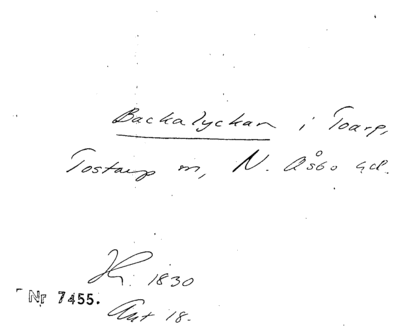 Backalyckan i Toarp,
Tostarp m, N. Åsbo hd.
K. 1830
Nr 7455.
Akt 18.